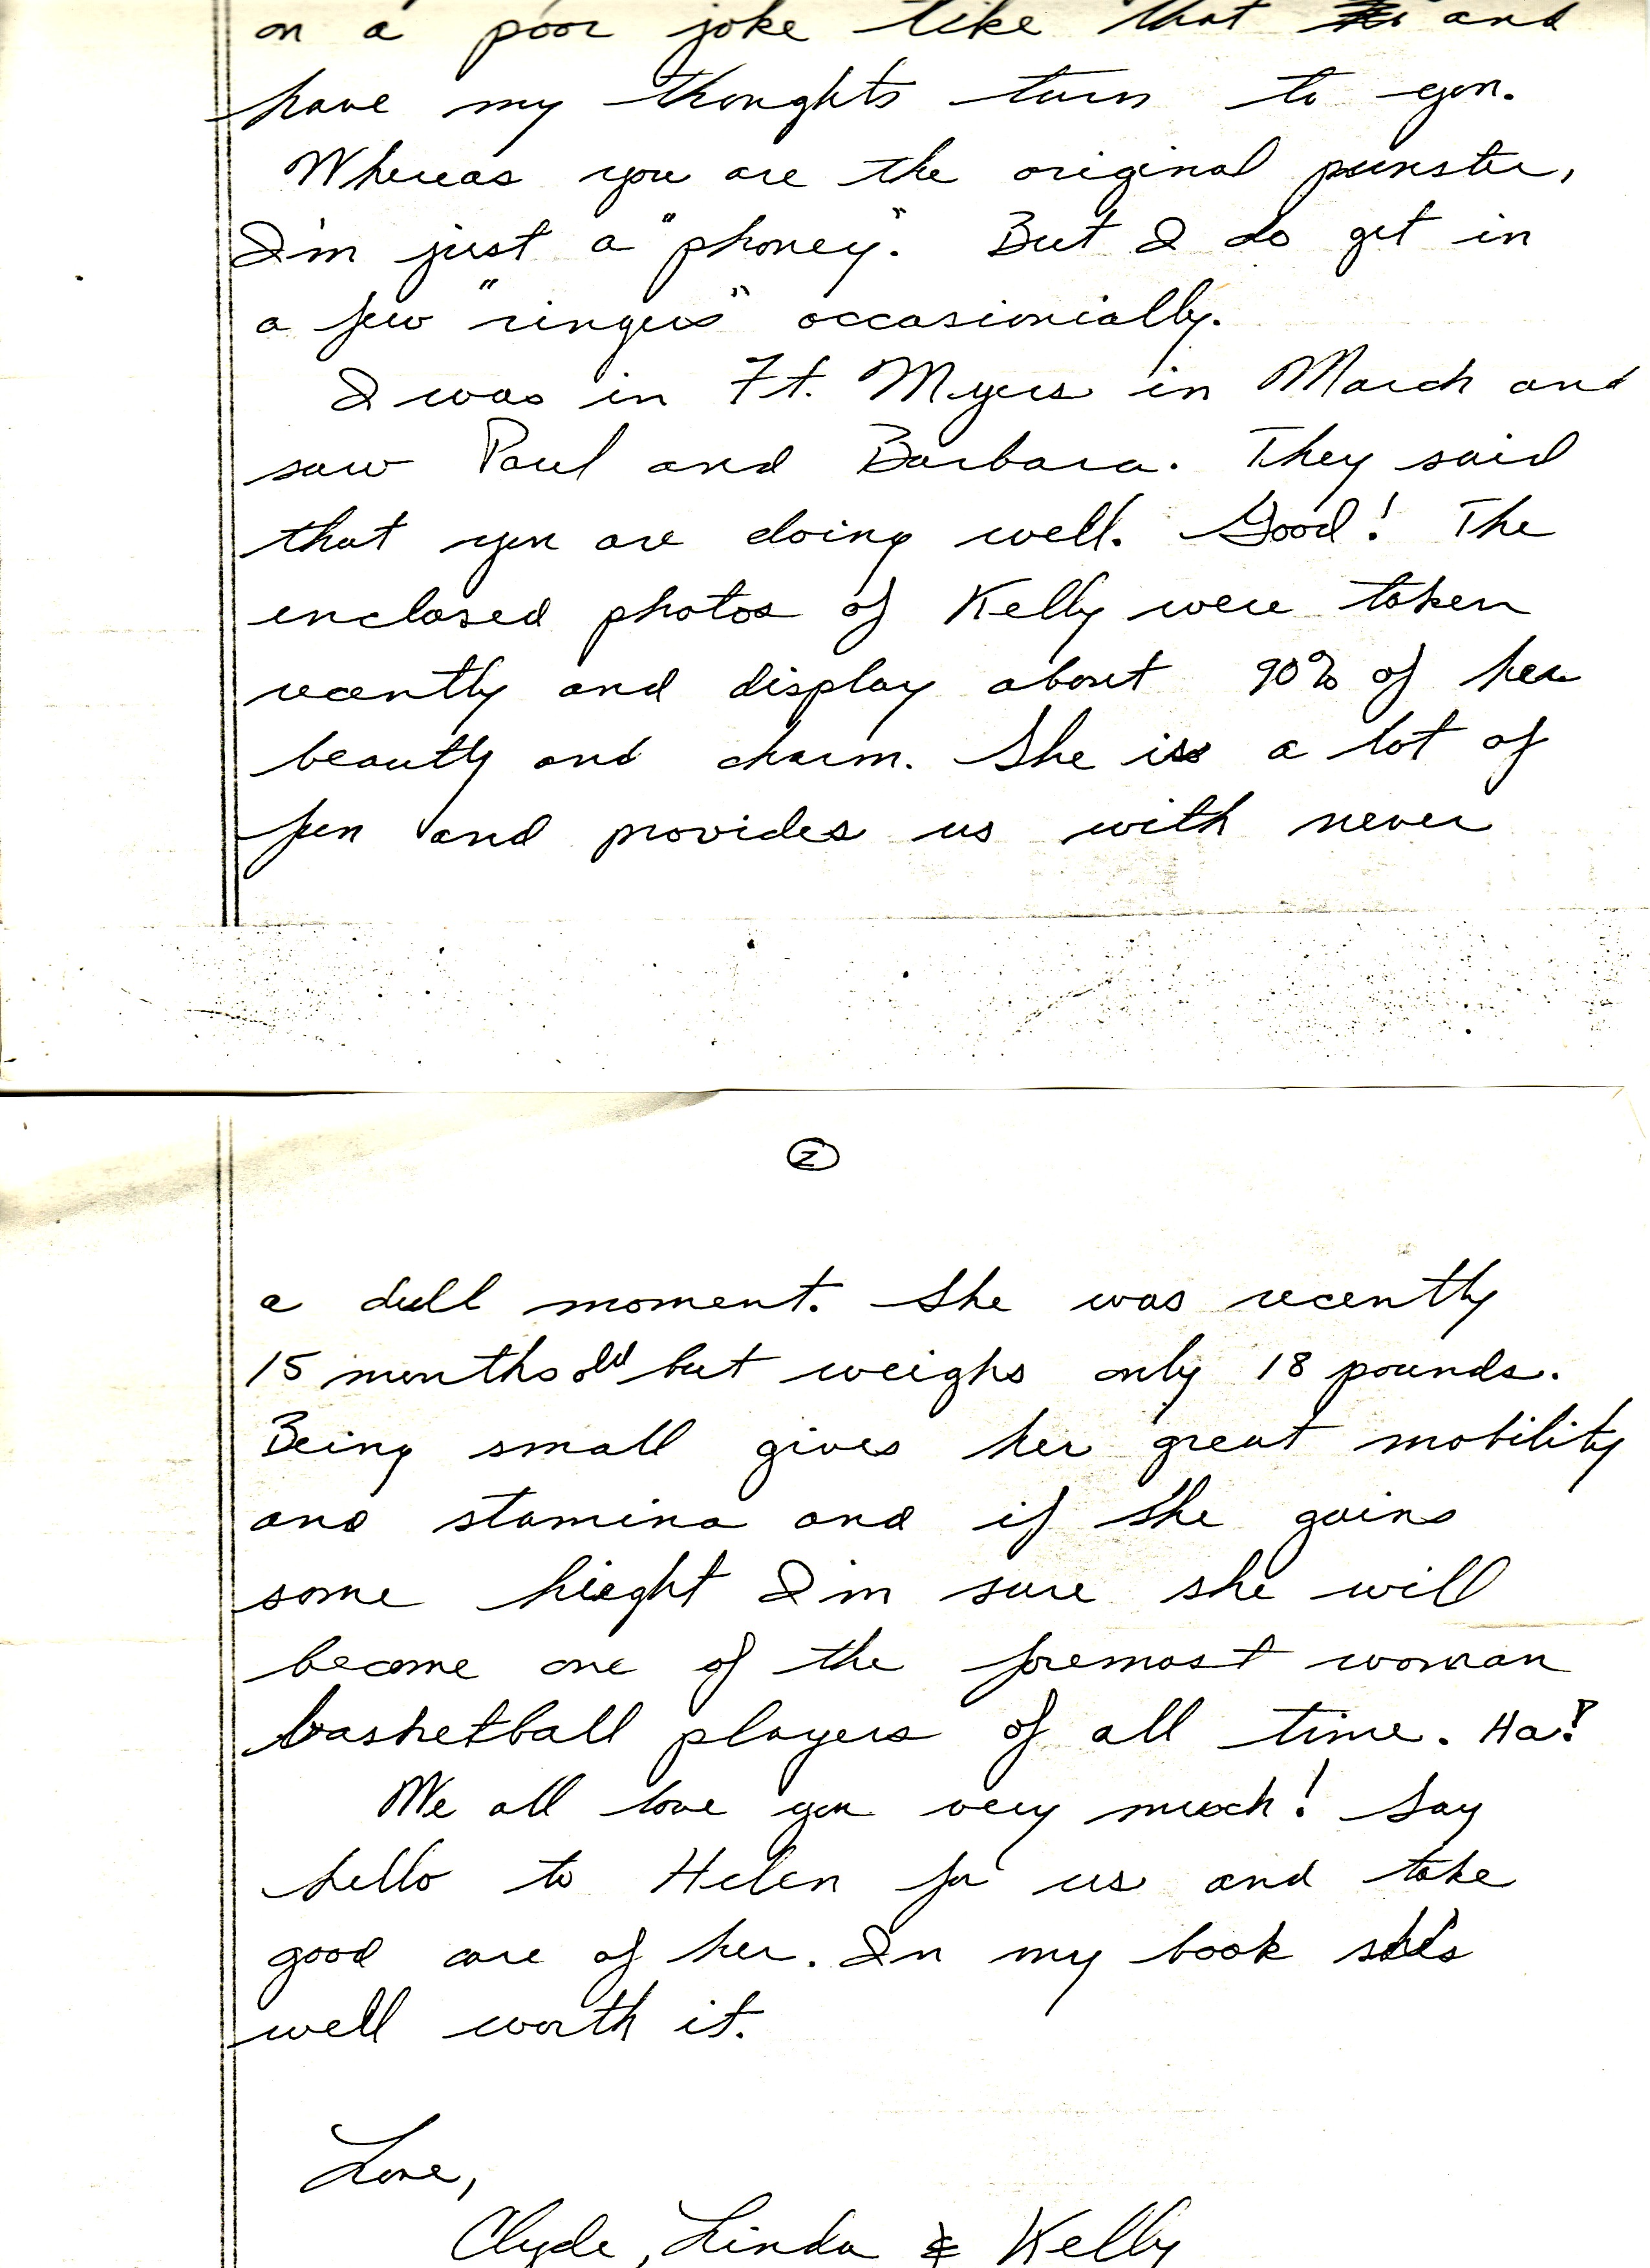 on a poor joke like that and
have my thoughts turn to you.
Whereas you are the original punster,
I'm just a "phoney". But I do get in
a few "ringers" occasionially.
I was in Ft. Myers in March and
saw Paul and Barbara. They said
that you are doing well. Good! The
enclosed photos of Kelly were taken
recently and display about 90% of her
beauty and charm. She is a lot of
fun and provides us with never
2
a dull moment. She was recently
15 months old but weighs only 18 pounds.
Being small gives her great mobility
and stamina and if she gains
some hieght I'm sure she will
become one of the foremost woman
basketball players of all time. Ha!
We all love you very much! Say
hello to Helen for us and take
good care of her. In my book she's
well worth it.
Love,
Clyde, Linda & Kelly